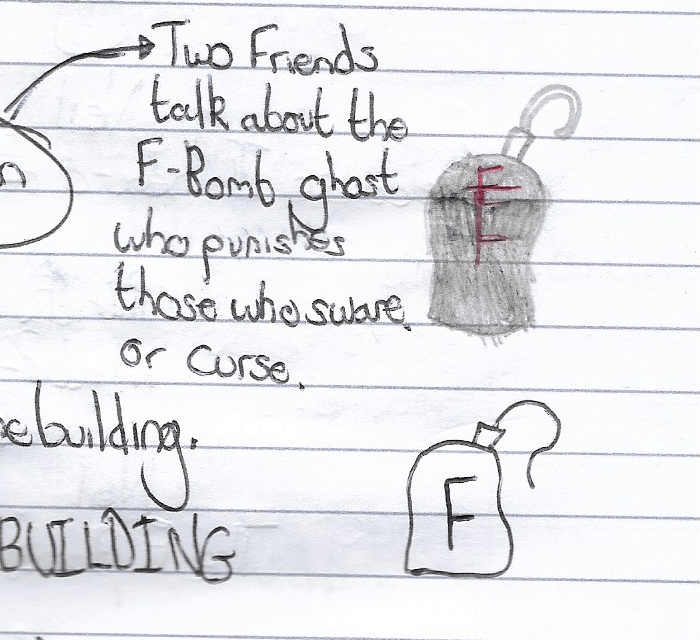 Two Friends
talk about the
F-Bomb ghost
n
who punishes
those who sware
or curse.
ebuilding.
BUILDING
F
F